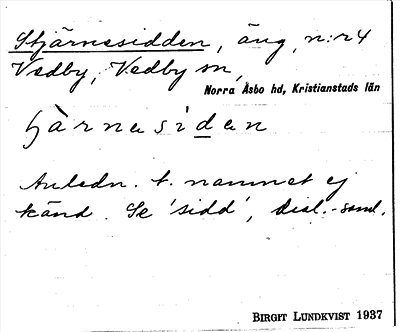 Stjärnesidden, äng, n:r 4
Vedby, Vedby sn,
Norra Åsbo hd, Kristianstads län
ʃä̀rnesi´den
Anledn. t. namnet ej
känd. Se 'sidd', dial.-saml.
BIRGIT LUNDKVIST 1937